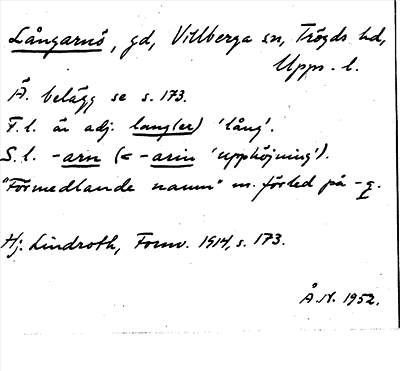 Långarnö, gd, Villberga sn, Trögds hd,
Upps. l.
Ä. belägg se s. 173.
F.l. är adj. lang(er) 'lång'.
S.l. -arn (< -arin 'upphöjning').
"Förmedlande namn" m. förled på -a.
Hj. Lindroth, Fornv. 1914, s. 173.
Å.N. 1952.